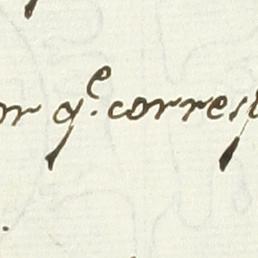 or q.e corresp